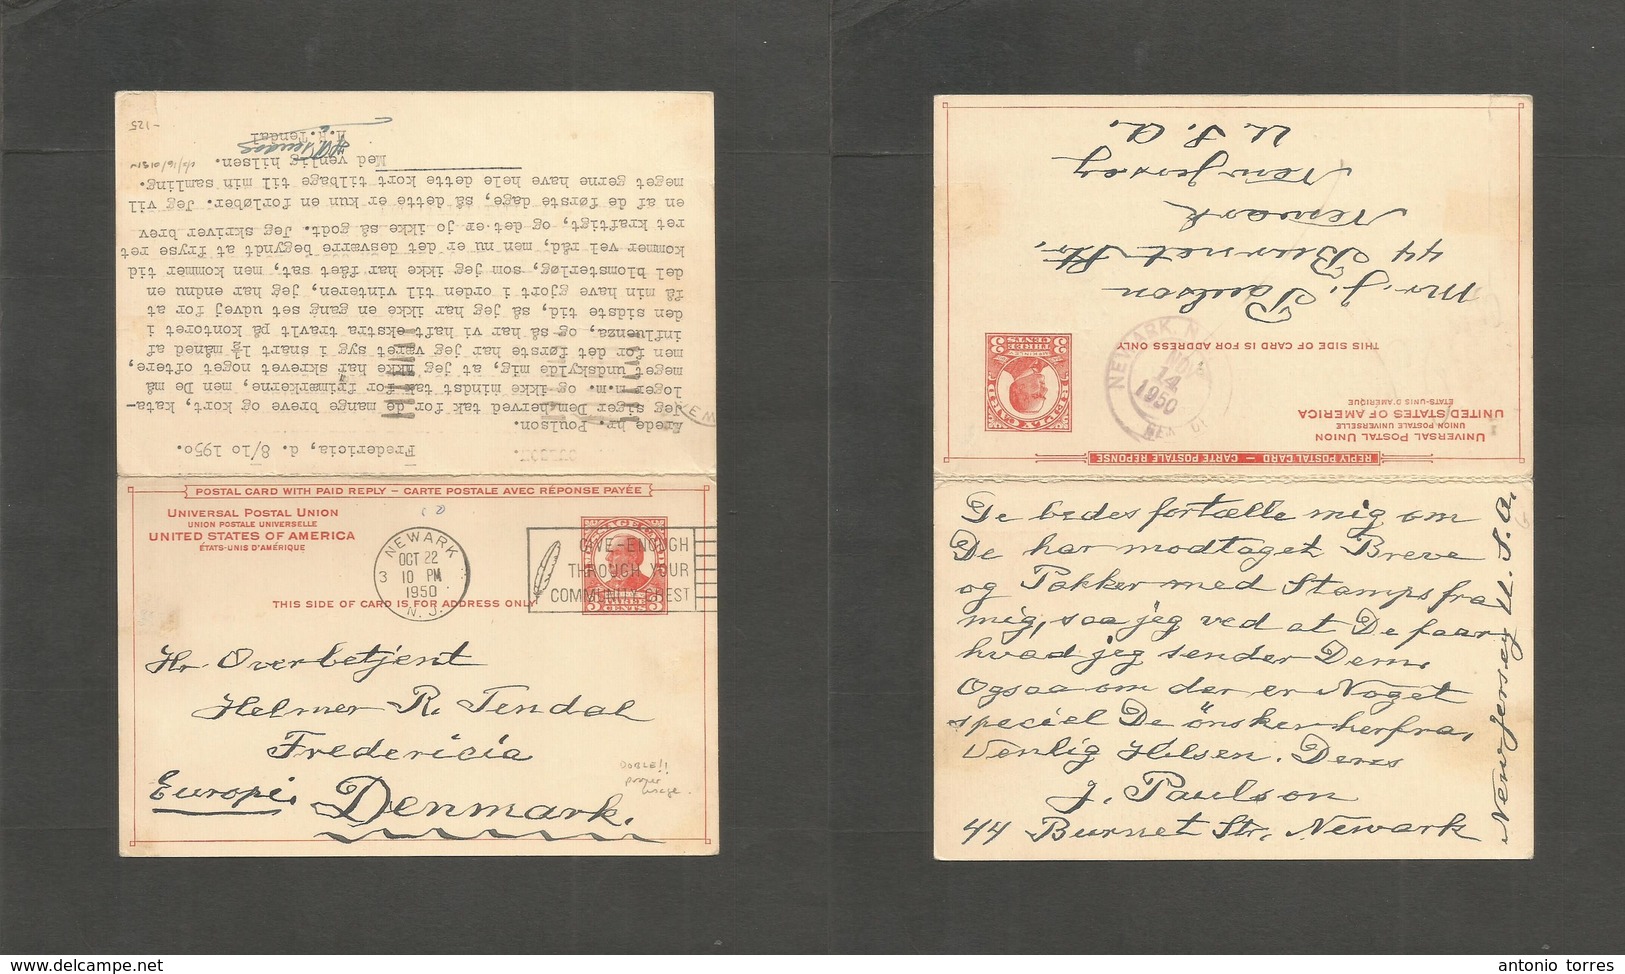 Fredericia, d. 8/10 1950.
Ærede hr. Poulson.
Jeg siger Dem herved tak for de mange breve og kort, kata-
loger m.m. og ikke mindst tak for frimærkerne, men De må
meget undskylde mig, at jeg ikke har skrevet noget oftere,
men for det første har jeg været syg i snart 1½ måned af
influenza, og så har vi haft ekstra travlt på kontoret i
den sidste tid, så jeg har ikke en gang set udvej for at
få min have gjort i orden til vinteren, jeg har endnu en
del blomsterløg, som jeg ikke har fået sat, men kommer tid
kommer vel råd, men nu er det desværre begyndt at fryse ret
ret kraftigt, og det er jo ikke så godt. Jeg skriver brev
en af de første dage, så dette er kun en forløber. Jeg vil
meget gerne have hele dette kort tilbage til min samling.
Med venlig hilsen.
H.R. Tendal
-125
POSTAL CARD WITH PAID REPLY – CARTE POSTALE AVEC RÉPONSE PAYÉE
UNIVERSAL POSTAL UNION
UNION POSTALE UNIVERSELLE
UNITED STATES OF AMERICA
ÉTATS-UNIS D'AMÉRIQUE
THIS SIDE OF CARD IS FOR ADDRESS ONLY
NEWARK 3 N.J.
OCT 22
10 PM
1950
GIVE-ENOUGH
THROUGH YOUR
COMMUNITY CHEST
Hr. Overbetjent
Helmer R. Tendal
Fredericia
Europe. Denmark.
DOBLE!!
proper
usage.
REPLY POSTAL CARD – CARTE POSTALE RÉPONSE
UNIVERSAL POSTAL UNION
UNION POSTALE UNIVERSELLE
UNITED STATES OF AMERICA
ÉTATS-UNIS D'AMÉRIQUE
THIS SIDE OF CARD IS FOR ADDRESS ONLY
NEWARK, N.J.
NOV
14
1950
Mr. J. Paulson
44 Burnet Str.
Newark
New Jersey
U. S. A.
De bedes fortælle mig om
De har modtaget Breve
og Pakker med Stamps fra
mig, saa jeg ved at De faar
hvad jeg sender Dem.
Ogsaa om der er Noget
speciel De önsker herfra,
Venlig Hilsen. Deres
J. Paulson
44 Burnet Str. Newark
New Jersey U. S. A.
delcampe.net
antonio torres